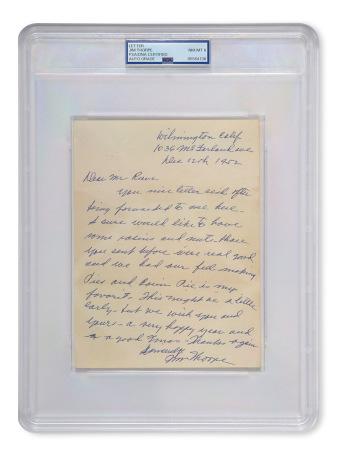 LETTER
JIM THORPE
PSA/DNA CERTIFIED
AUTO GRADE
NM-MT 8
Wilmington Calif
1036 McFarland ave
Dec 12th 1952
Dear Mr
your nice letter rec'd after
being forwarded to me here -
I sure would like to have
some raisins and nuts those
you sent before was real good
and we had our fill making
Pies and Raisin Pie is my
favorit. This might be a little
early - but we wish you and
yours - a very happy year and
a good Xmas - Thanks again
Sincerely
Jim Thorpe